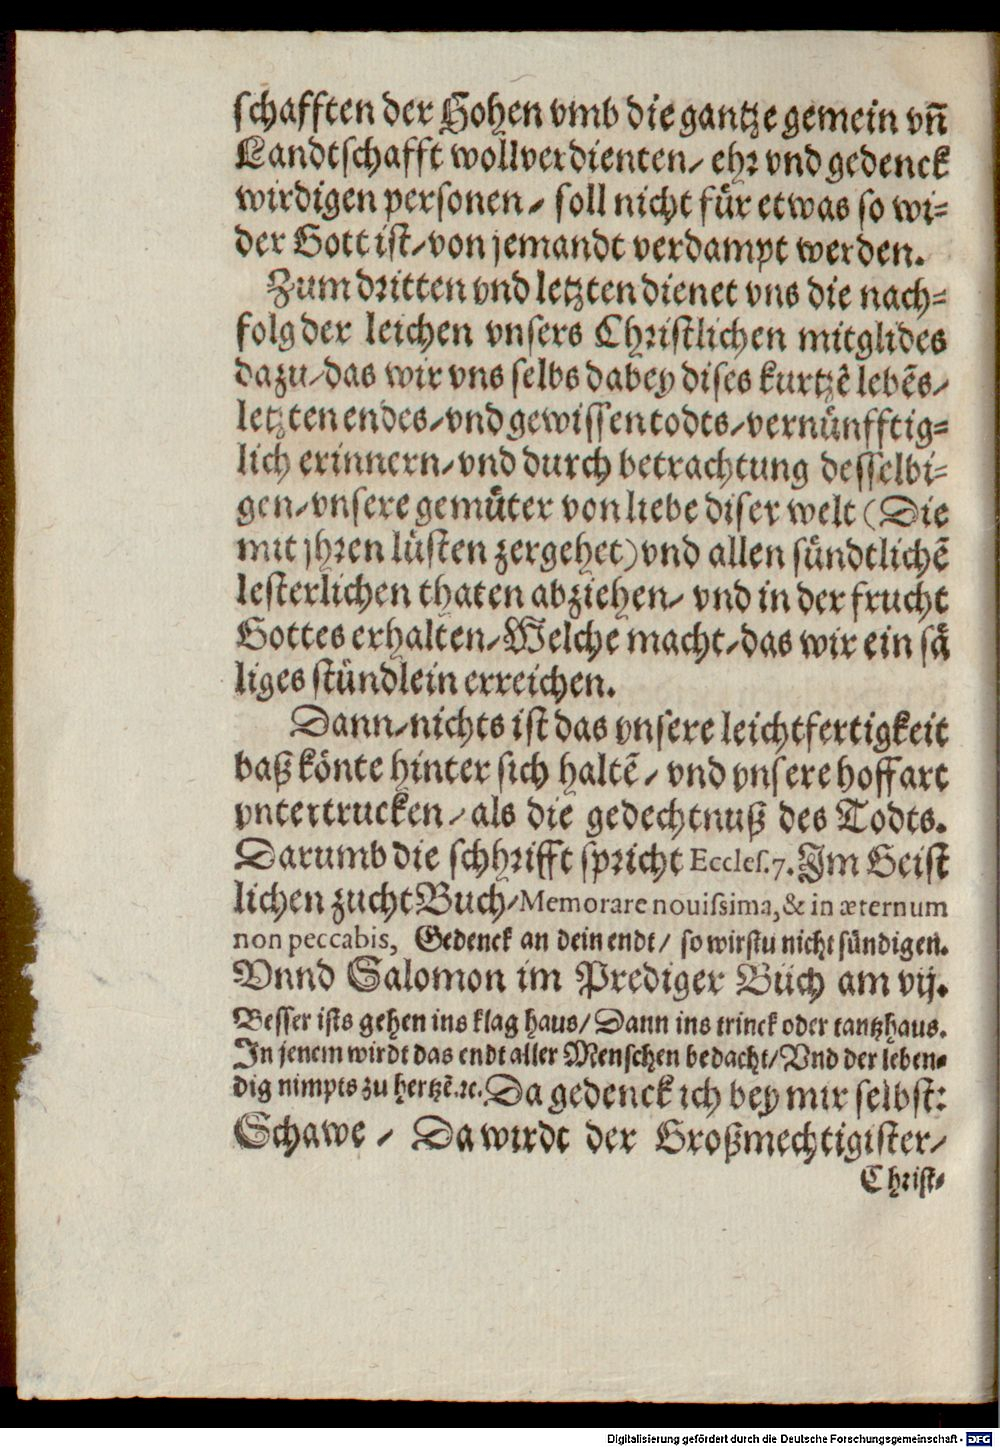 schafften der Hohen vmb die gantze gemein vn̄
Landtschafft wollverdienten/ ehr vnd gedenck
wirdigen personen/ soll nicht für etwas so wi⸗
der Gott ist/von jemandt verdampt werden.
Zum dritten vnd letzten dienet vns die nach⸗
folg der leichen vnsers Christlichen mitglides
dazu/das wir vns selbs dabey dises kurtzē lebēs/
letzten endes/vnd gewissen todts/vernünfftig⸗
lich erinnern/vnd durch betrachtung desselbi⸗
gen/vnsere gemüter von liebe diser welt (Die
mit jhren lüsten zergehet) vnd allen sündtlichē
lesterlichen thaten abziehen/ vnd in der frucht
Gottes erhalten/Welche macht/das wir ein sä
liges stündlein erreichen.
Dann/nichts ist das vnsere leichtfertigkeit
baß könte hinter sich haltē/ vnd vnsere hoffart
vntertrucken/als die gedechtnuß des Todts.
Darumb die schhrifft spricht Eccles.7.Im Geist
lichen zucht Buch/Memorare nouissima, & in æternum
non peccabis, Gedenck an dein endt/ so wirstu nicht sündigen.
Vnnd Salomon im Prediger Buch am vij.
Besser ists gehen ins klag haus/Dann ins trinck oder tantzhaus.
In jenem wirdt das endt aller Menschen bedacht/Vnd der leben⸗
dig nimpts zu hertzē.ꝛc. Da gedenck ich bey mir selbst:
Schawe / Da wirdt der Großmechtigister/
Christ⸗
Digitalisierung gefördert durch die Deutsche Forschungsgemeinschaft - DFG